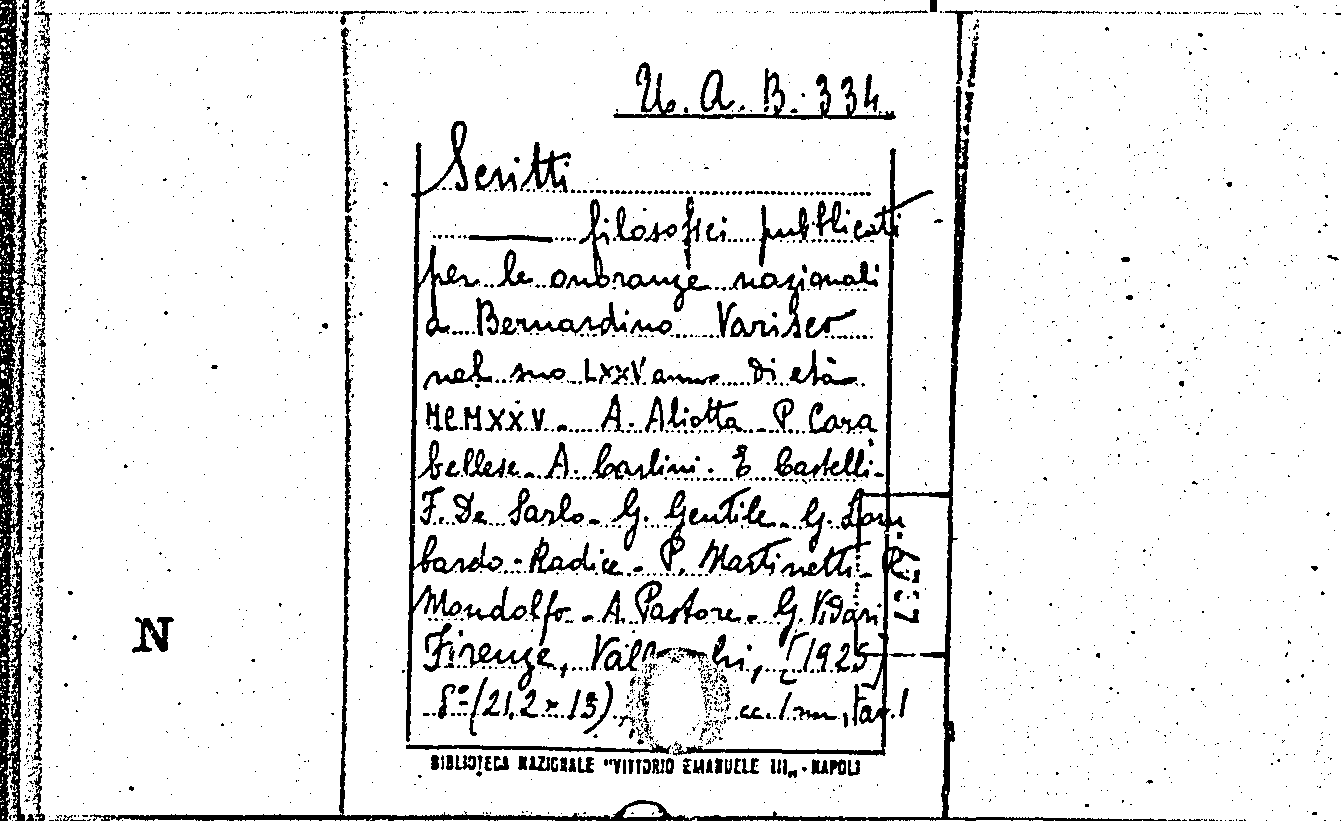 U. A. B. 334
Scritti
filosofici pubblicati
per le onoranze nazionali
a Bernardino Varisco
nel suo LXXV anno di età
MCMXXV - A. Aliotta - P. Cara
bellese - A. Carlini - E Castelli -
F. De Sarlo - G. Gentile - G. Lom
bardo - Radice - P. Martinetti - R.
Mondolfo - A. Pastore - G. Vidari
Firenze, [1925]
8° (21,2 × 13), cc. 1 nn, tav. 1
BIBLIOTECA NAZIONALE "VITTORIO EMANUELE III„ - NAPOLI
N